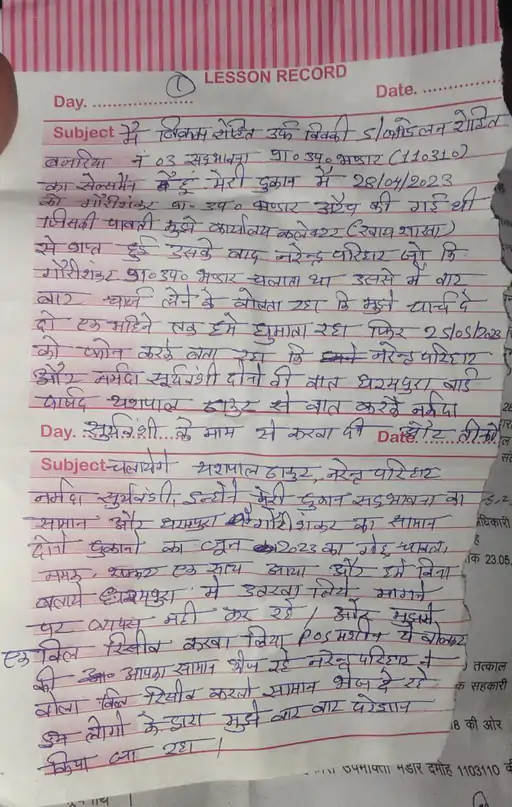 ①
LESSON RECORD
Day. .................... Date. ....................
Subject में विक्रम रोहित उर्फ विक्की S/O कोंदेलन रोहित
बजरिया नं 03 सदभावना प्रा० उप० भण्डार (11030)
का सेल्समैन हूं मेरी दुकान में 28/04/2023
को गौरीशंकर प्रा० उप० भण्डार अटैच की गई थी
जिसकी पावती मुझे कार्यालय कलेक्टर (खाद्य शाखा)
से प्राप्त हुई उसके बाद नरेन्द्र परिहार जो कि
गौरीशंकर प्रा० उप० भण्डार चलाता था उससे में बार
बार चार्ज लेने के बोलता रहा कि मुझे चार्च दे
दो एक महिने तक हमे घुमाता रहा फिर 25/05/2023
को फोन करके बता रहा कि नरेन्द्र परिहार
और नर्मदा सूर्यवंशी दोनो की बात धरमपुरा बार्ड
पार्षद यशपाल ठाकुर से बात करके नर्मदा
Day. सुर्यवंशी के नाम से करवा दी Date. और तीनो
Subject चलायेगे यशपाल ठाकुर, नरेन्द्र परिहार
नर्मदा सुर्यवंशी, इन्होने मेरी दुकान सदभावना का
सामान और धरमपुरा गौरीशंकर का सामान
दोनो दुकानो का जून 2023 का गेहू चावल,
नमक, शक्कर एक साथ आया और हमे बिना
बताये धरमपुरा में उतरवा लिये मागने
पर वापस नही कर रहे / और मुझसे
एक बिल रिसीव करवा लिया POS मशीन ये बोलकर
की आपका सामान भेज रहे नरेन्द्र परिहार ने
बोला बिल रिसीव करलो सामान भेज दे रहे
इन लोगो के द्वारा मुझे बार बार परेशान
किया जा रहा /
धिकारी
क 23.05.
तत्काल
क सहकारी
18 की ओर
उपभोक्ता भंडार दमोह 1103110